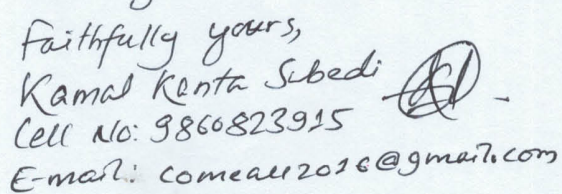 Faithfully yours,
Kamal Kanta Subedi
Cell No: 9860823915
E-mail: comeau2016@gmail.com